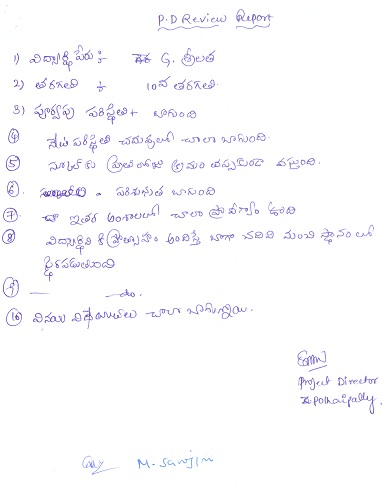 P.D Review Report
1) విద్యార్థి పేరు :- G. శ్రీలత
2) తరగతి : 10వ తరగతి.
3) పూర్వపు పరిస్థితి + బాగుంది
4 నేటి పరిస్థితి చదువులో చాలా బాగుంది.
5 స్కూల్ కు ప్రతిరోజు క్రమం తప్పకుండా వస్తుంది.
6. పరిశుభ్రత బాగుంది
7. ఇతర అంశాలలో చాలా ప్రావీణ్యం ఉంది
8 విద్యార్థిని కి ప్రోత్సాహం అందిస్తే బాగా చదివి మంచి స్థానం లో
స్థిరపడుతుంది
9 — —do.
10 వినయ విధేయతలు చాలా బాగున్నాయి.
Project Director
M. Sarojini